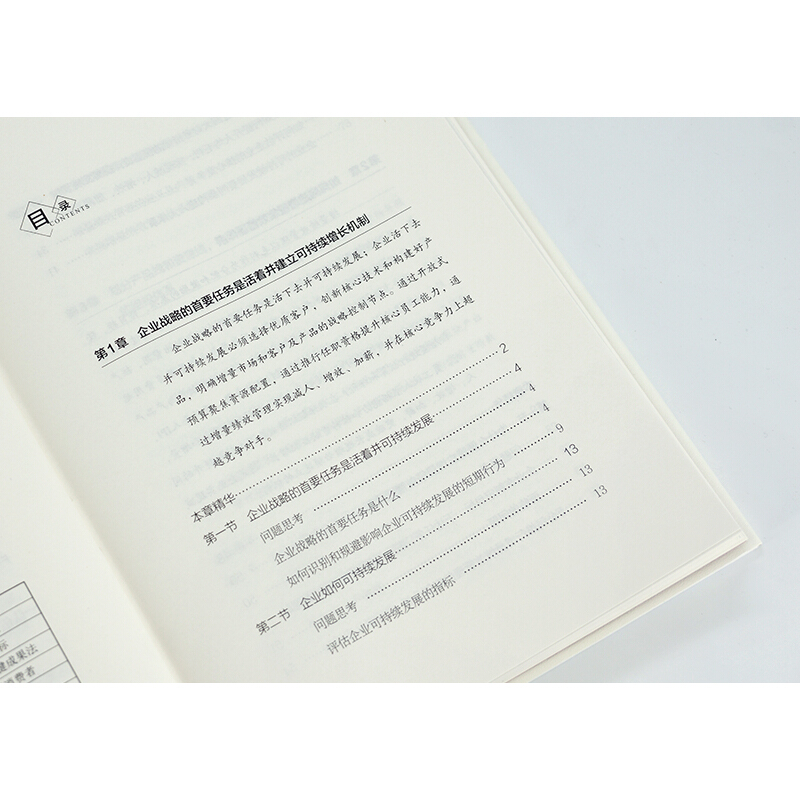 目录
CONTENTS
第1章 企业战略的首要任务是活着并建立可持续增长机制
企业战略的首要任务是活下去并可持续发展；企业活下去
并可持续发展必须选择优质客户，创新核心技术和构建好产
品，明确增量市场和客户及产品的战略控制节点。通过开放式
预算聚焦资源配置，通过推行任职资格提升核心员工能力，通
过增量绩效管理实现减人、增效、加薪，并在核心竞争力上超
越竞争对手。
本章精华 2
第一节 企业战略的首要任务是活着并可持续发展 4
问题思考 4
企业战略的首要任务是什么 4
如何识别和规避影响企业可持续发展的短期行为 9
第二节 企业如何可持续发展 13
问题思考 13
评估企业可持续发展的指标 13
标
键成果法
消费者